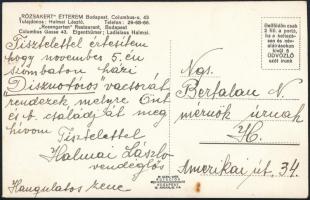 „RÓZSAKERT” ÉTTEREM Budapest, Columbus-u. 43
Tulajdonos: Halmai László. Telefon: 29-68-66.
„Rosengarten” Restaurant, Budapest
Columbus Gasse 43. Eigentümer: Ladislaus Halmai.
Tisztelettel értesítem
hogy november 5.-én
szombaton házi
Disznótoros vacsorát
rendezek melyre Önt
és b. családját meg
hívom
Tisztelettel
Halmai László
vendéglős
Hangulatos zene
Belföldön csak
2 fill. a porto,
ha a keltezé-
sen és név-
aláíráson
kívül 5
ÜDVÖZLŐ
szót írunk
Ngs.
Bertalan N.
mérnök úrnak
H.
Amerikai út. 34.
BUDAPEST